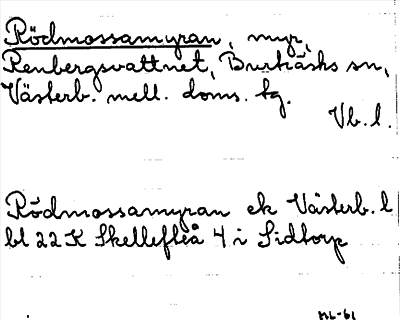 Rödmossamyran, myr,
Renbergsvattnet, Burträsks sn,
Västerb. mell. doms. tg.
Vb. l.
Rödmossamyran ek Västerb. l
bl 22 K Skellefteå 4 i Sidtorp